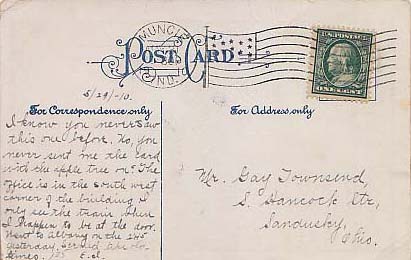 MUNCIE
IND.
POST CARD
U.S. POSTAGE
ONE CENT
5/29/-10.
For Correspondence only
I know you never saw
this one before. No, you
never sent me the card
with the apple tree on? The
office is in the south west
corner of the building. I
only see the train when
I happen to be at the door.
Went to Albany on the 245
yesterday.
times. E.I.
For Address only
Mr. Gay Townsend,
S. Hancock Str,
Sandusky,
Ohio.